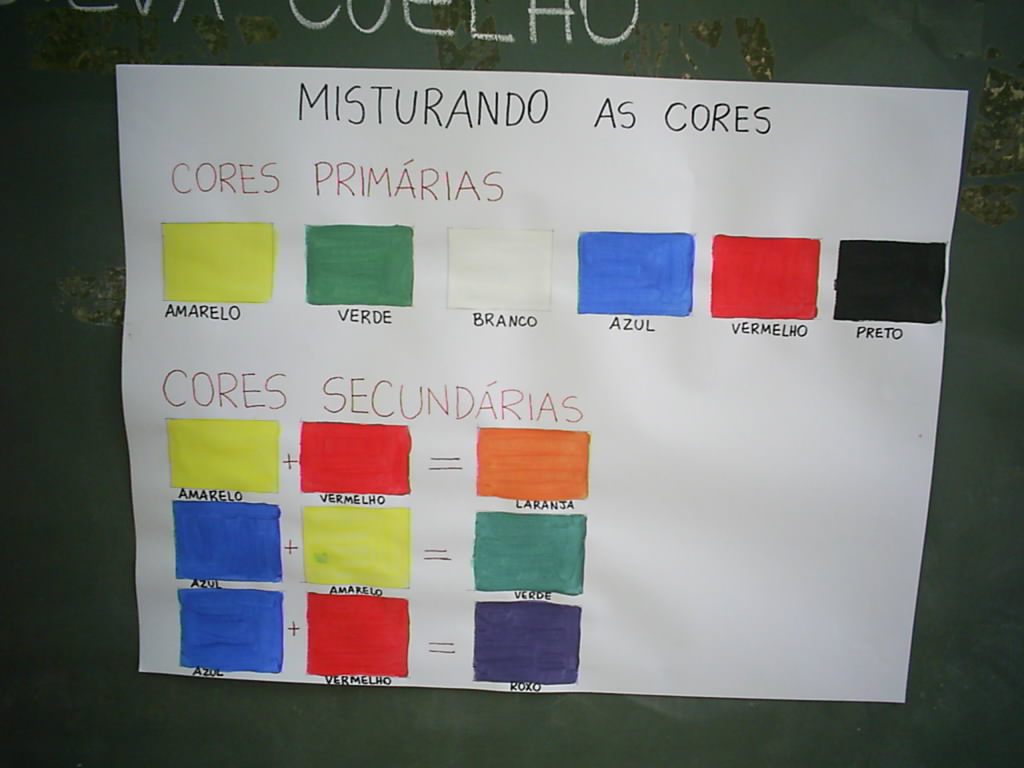 COELHO
MISTURANDO AS CORES
CORES PRIMÁRIAS
AMARELO VERDE BRANCO AZUL VERMELHO PRETO
CORES SECUNDÁRIAS
+ =
AMARELO VERMELHO LARANJA
+ =
AZUL AMARELO VERDE
+ =
AZUL VERMELHO ROXO